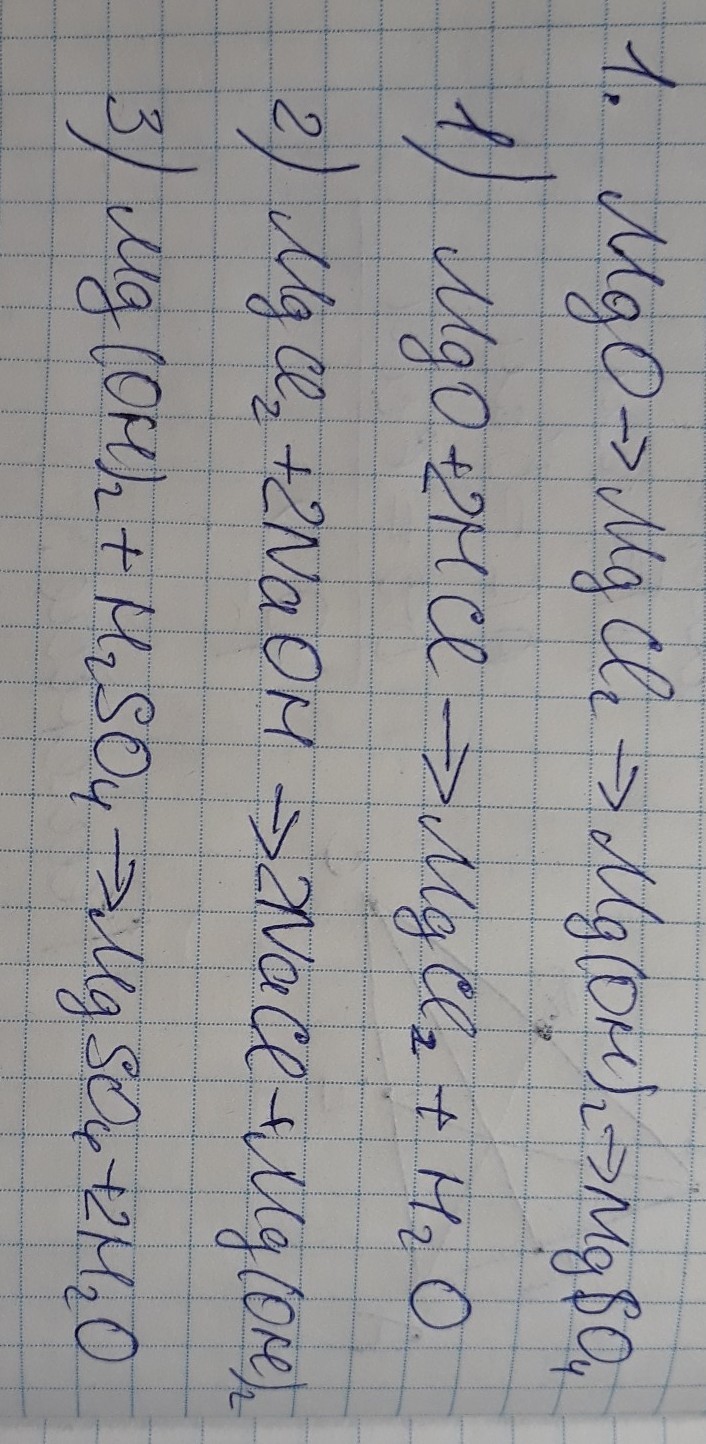 1. MgO→MgCl₂→Mg(OH)₂→MgSO₄
1) MgO+2HCl→MgCl₂+H₂O
2) MgCl₂+2NaOH→2NaCl+Mg(OH)₂
3) Mg(OH)₂+H₂SO₄→MgSO₄+2H₂O